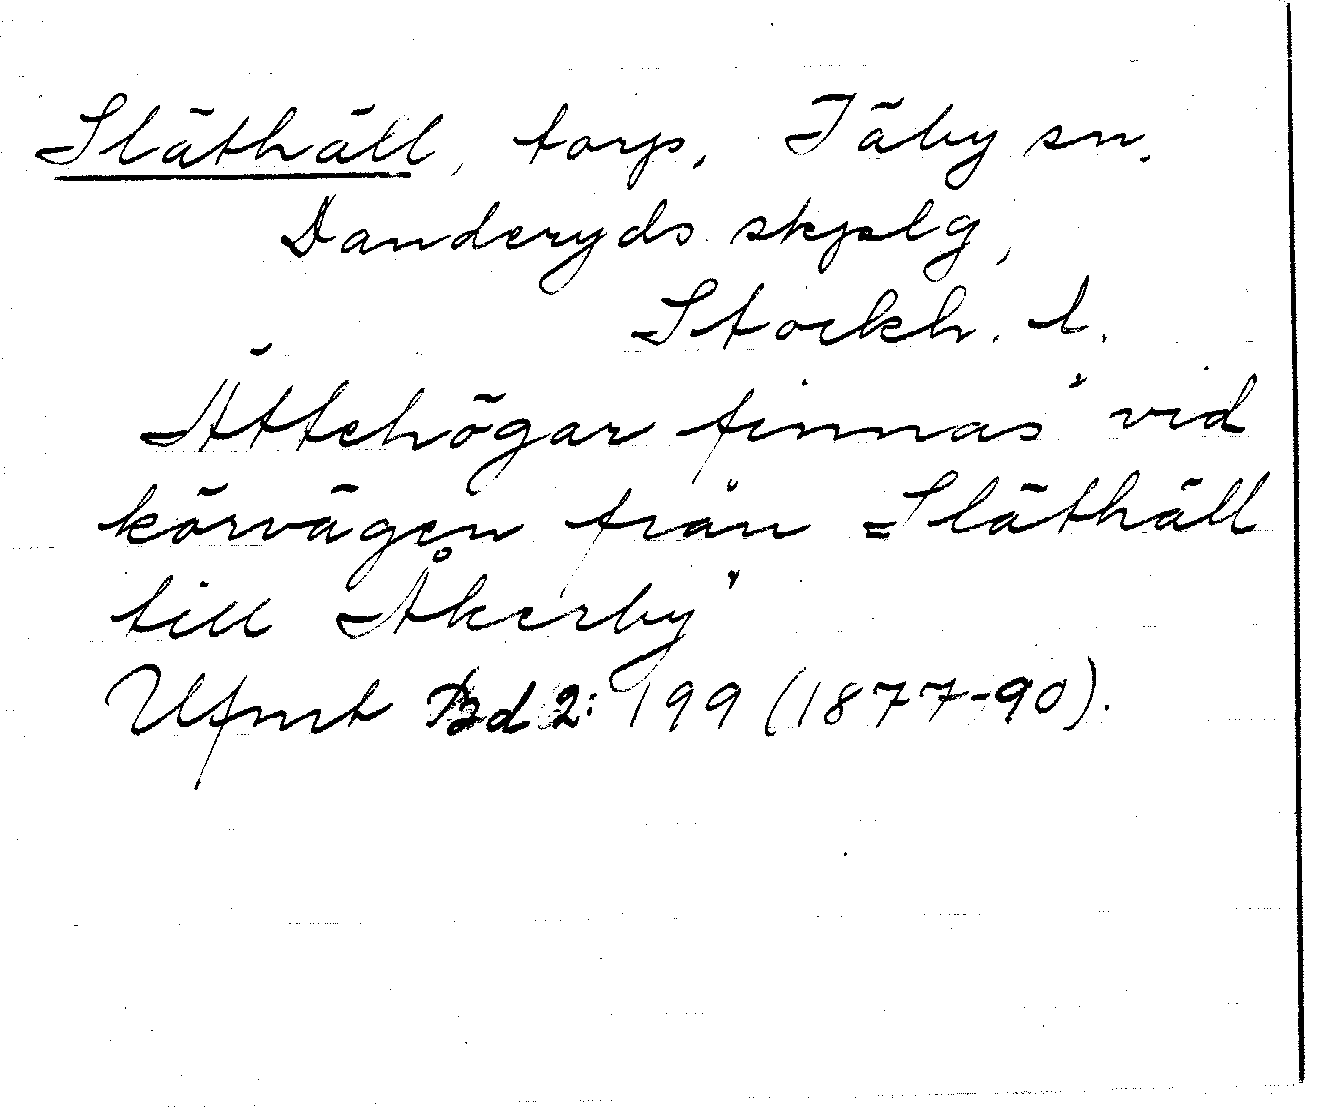 Släthäll, torp, Täby sn.
Danderyds skplg,
Stockh. l.
Ättehögar finnas "vid
körvägen från Släthäll
till Åkerby"
Ufmt Bd 2: 199 (1877-90).